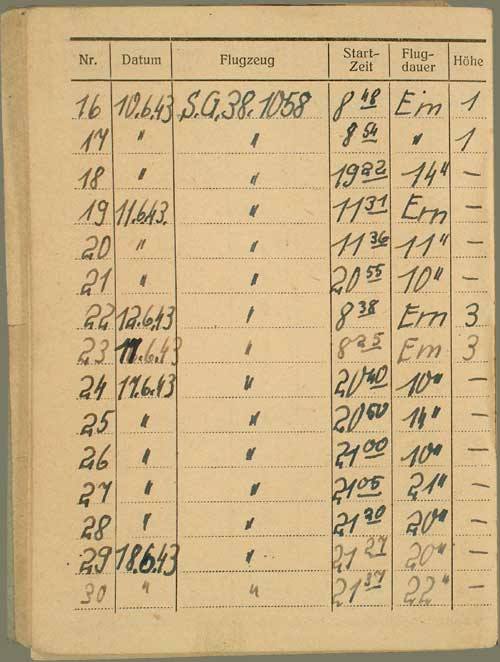 Nr. Datum Flugzeug Start-Zeit Flug-dauer Höhe
16 10.6.43 S.G.38.1058 8 48 Em 1
17 " " 8 54 " 1
18 " " 19 22 14" –
19 11.6.43. " 11 31 Em –
20 " " 11 36 11" –
21 " " 20 55 10" –
22 12.6.43 " 8 38 Em 3
23 .6.43 " 8 25 Em 3
24 17.6.43 " 20 40 10" –
25 " " 20 50 14" –
26 " " 21 00 10" –
27 " " 21 05 21" –
28 " " 21 20 20" –
29 18.6.43 " 21 27 20" –
30 " " 21 37 22" –